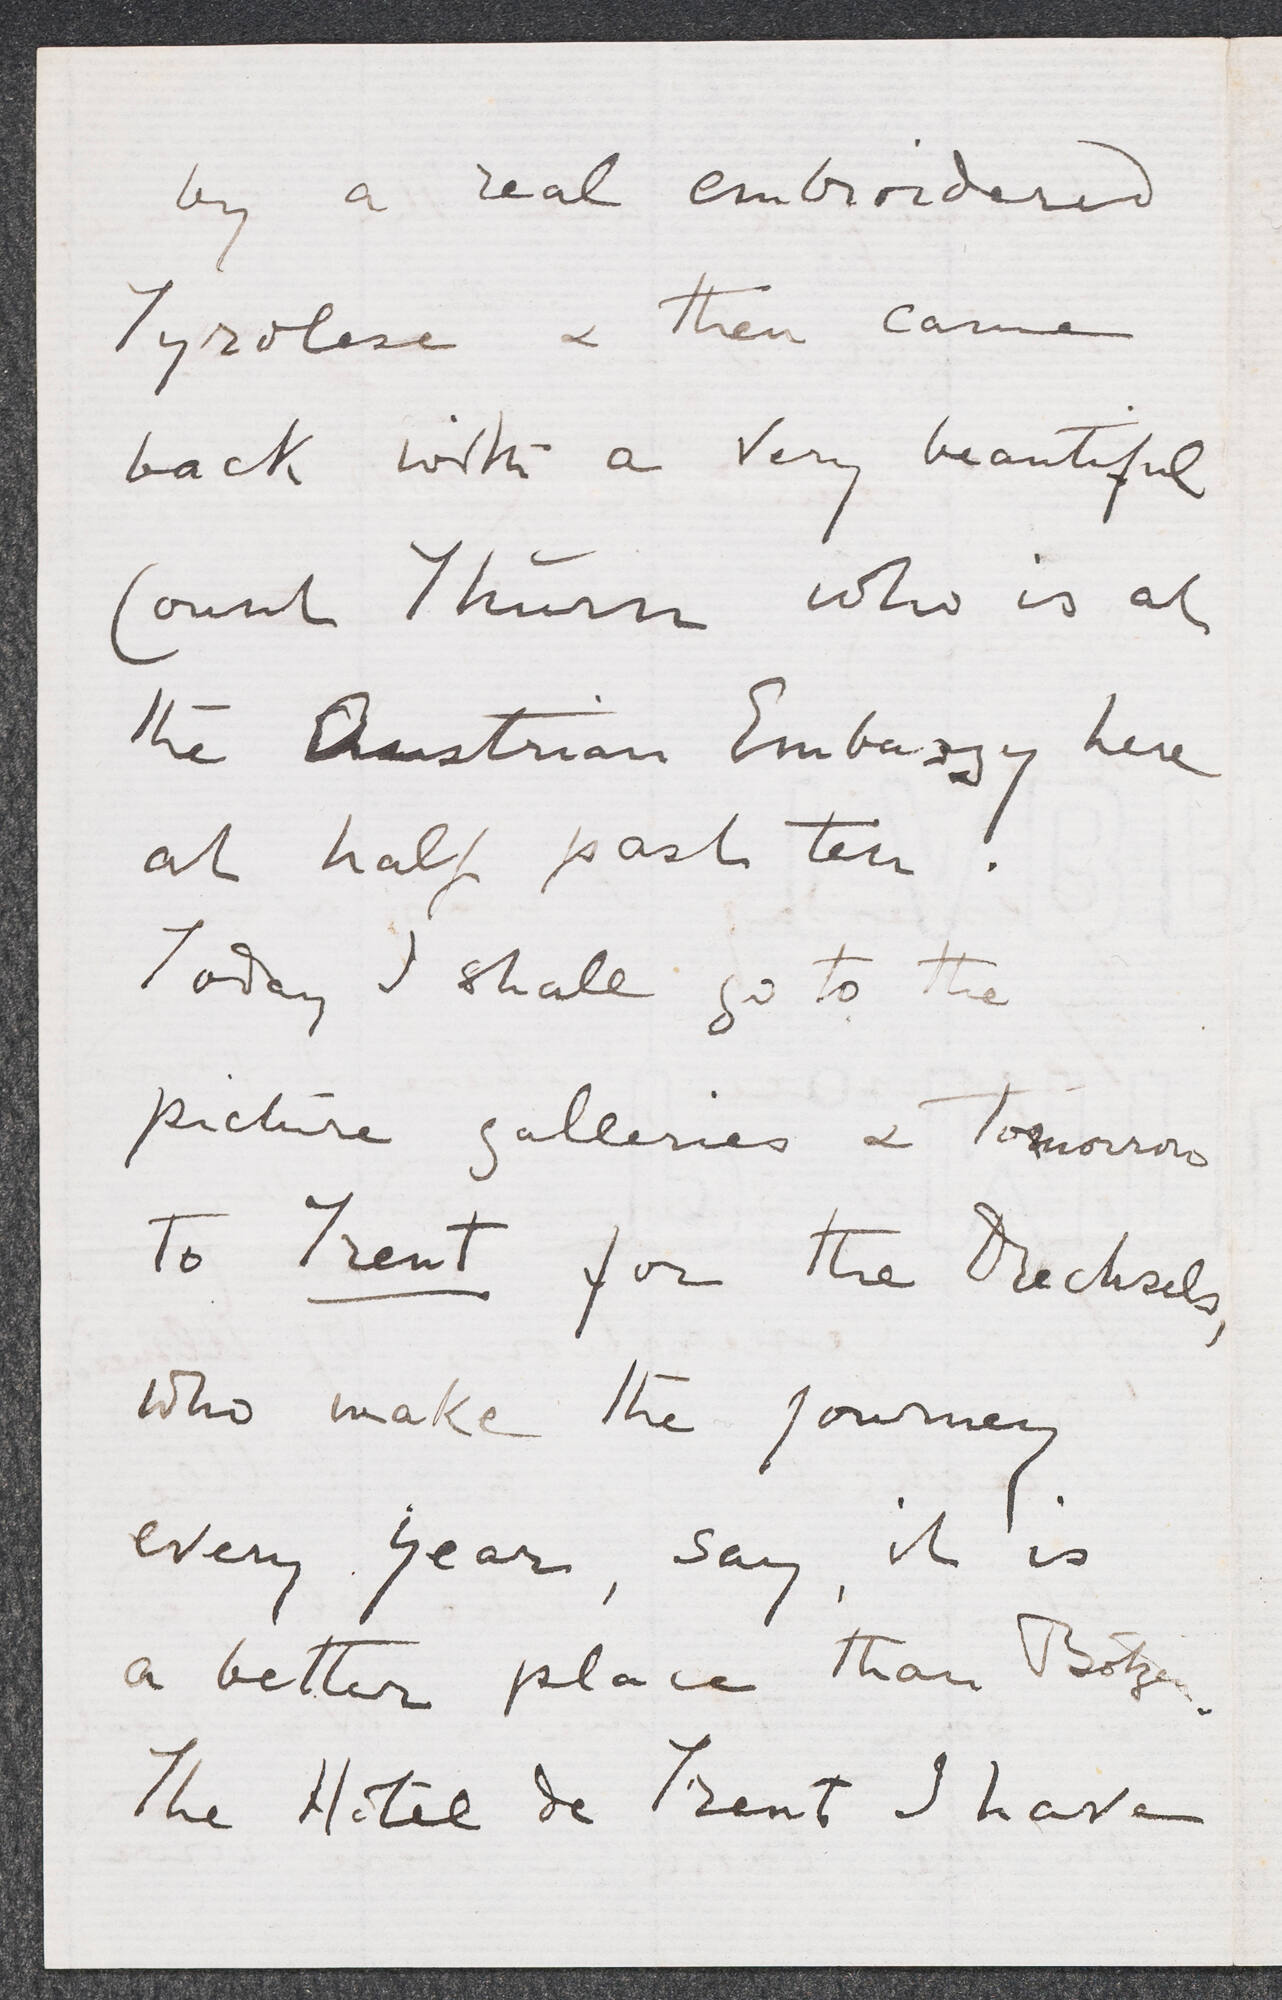 by a real embroidered
Tyrolese & then came
back with a very beautiful
Count Thurn who is at
the Austrian Embassy here
at half past ten.
Today I shall go to the
picture galleries & Tomorrow
To Trent for the Drechsels,
who make the journey
every year, say, it is
a better place than Botzen.
The Hôtel de Trent I have